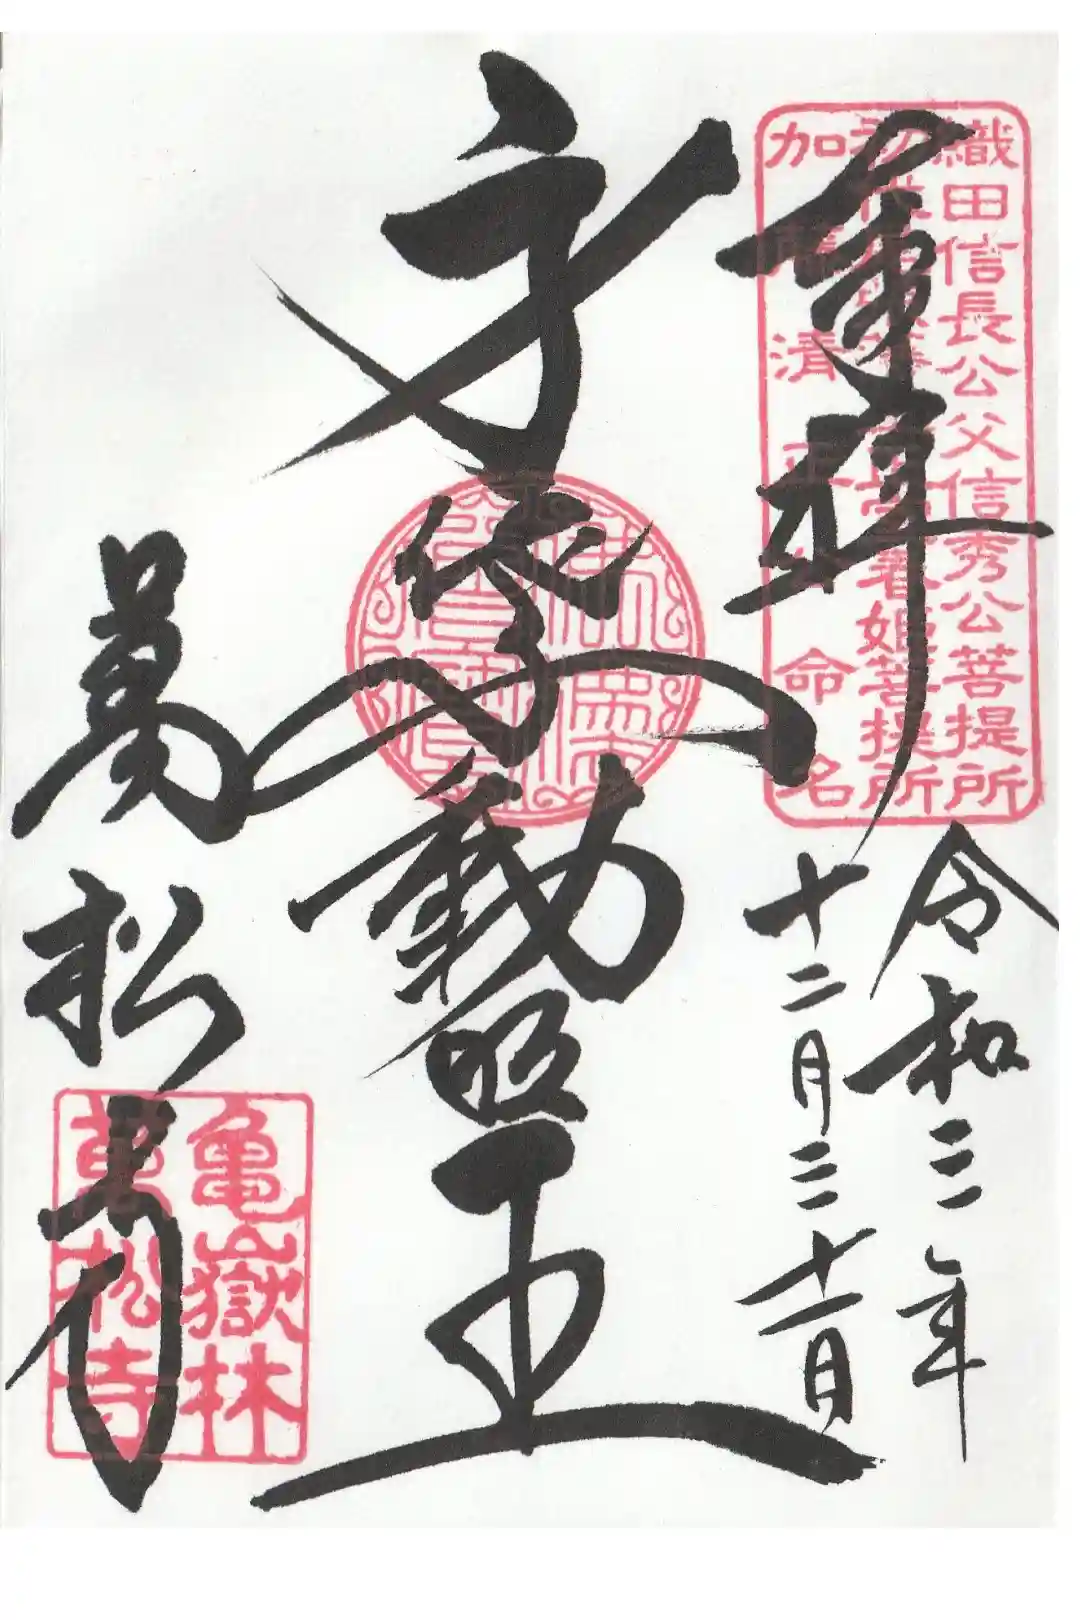 奉拝
織田信長公父信秀公菩提所
春姫菩提所
加藤清正公命名
令和三年
十二月三十一日
身代不動明王
萬松寺
亀嶽林
萬松寺